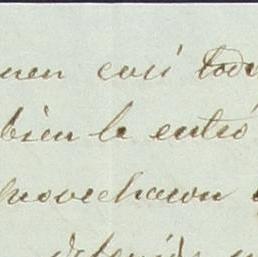 nen casi todo
bien le entró
provecharon
detenido